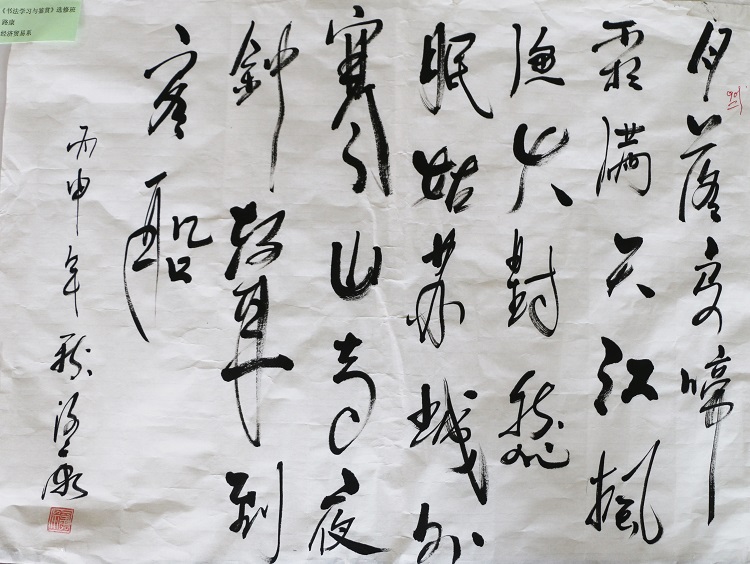 《书法学习与鉴赏》选修班
路康
经济贸易系
月落烏啼
霜满天江楓
渔火對愁
眠姑苏城外
寒山寺夜
鈡聲到
客船
丙申年秋路康